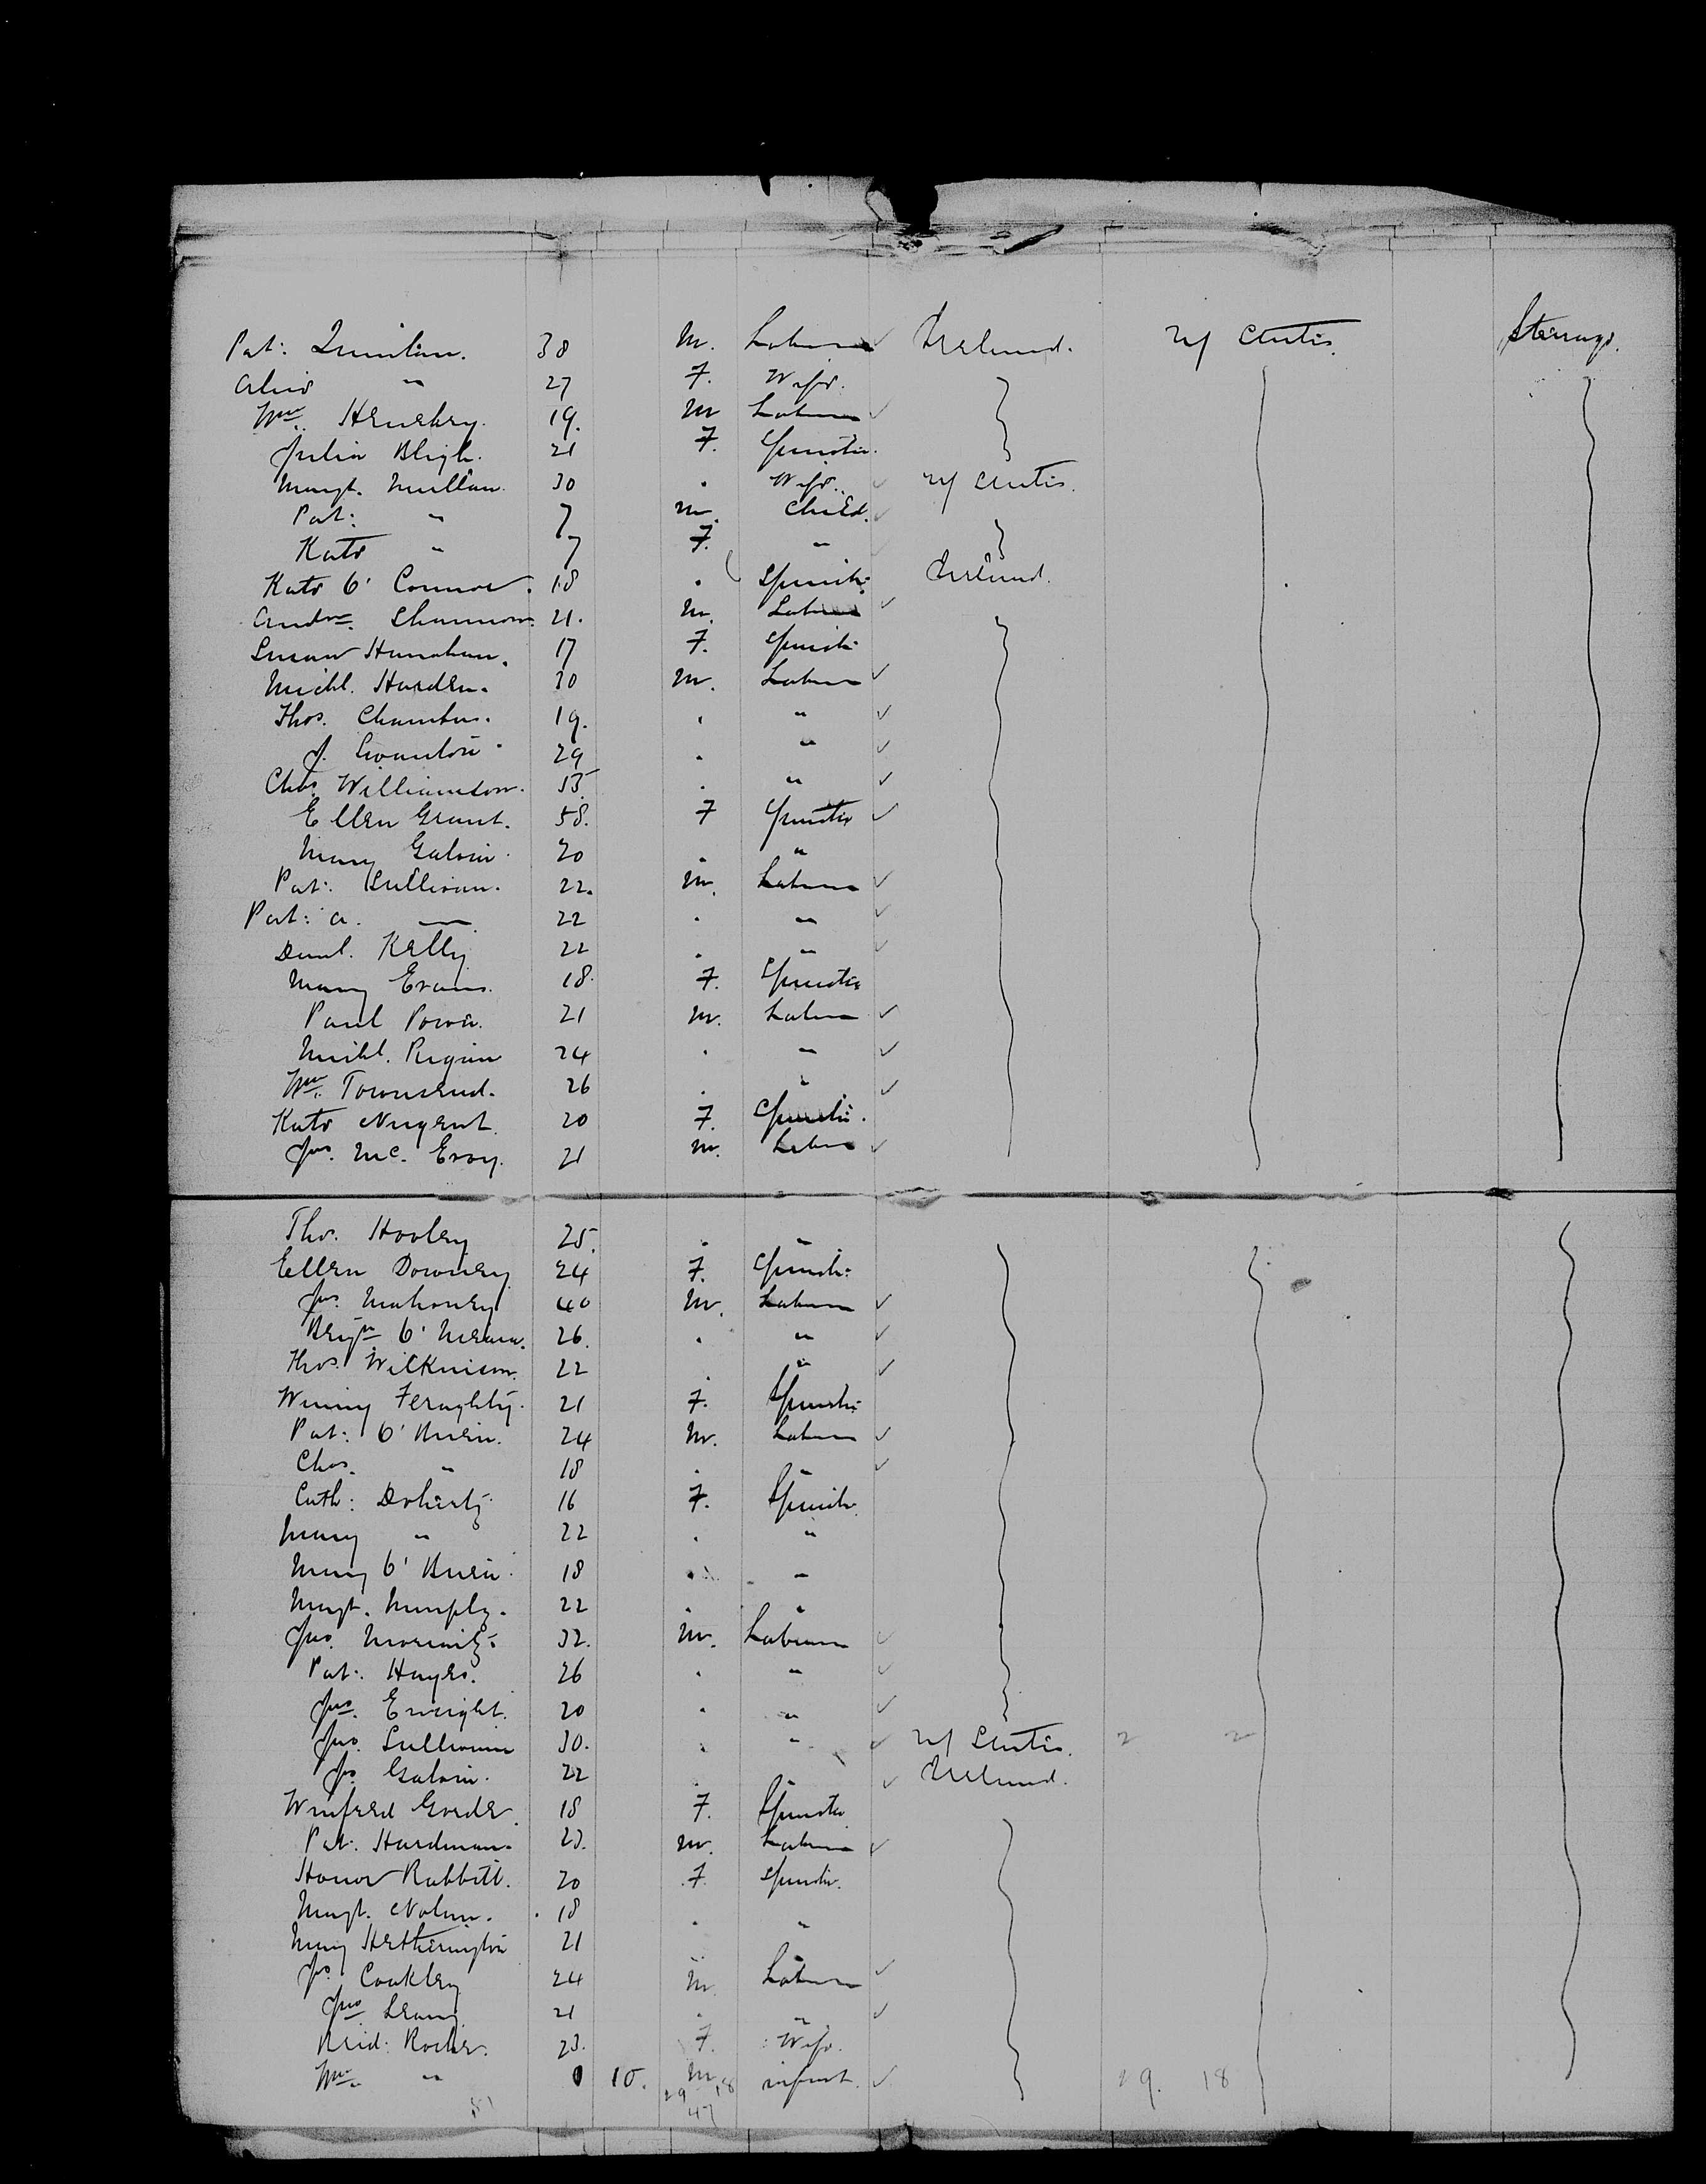 Pat: Quinlan. 38 M. Laborer Ireland. U/ States. Steerage.
Alice " 27 F. Wife.
Wm. Henebry. 19. M Laborer
Julia Bligh. 21 F. Spinster.
Margt. Mullan. 30 . Wife. U/ States.
Pat: " 7 M. Child.
Kate " 7 F. "
Kate O' Connor. 18 . Spinster Ireland.
Andw. Shannon. 21. M. Laborer
Susan Hanahan. 17 F. Spinster
Michl. Harden. 30 M. Laborer
Thos. Chambers. 19. . "
J. Swanton. 29 . "
Chas. Williamson. 55. . "
Ellen Grant. 58. F Spinster
Mary Galvin. 20 . "
Pat: Sullivan. 22. M. Laborer
Pat: A. " 22 . "
Danl. Kelly 22 . "
Mary Evans. 18. F. Spinster
Paul Power. 21 M. Laborer
Michl. 24 . "
Wm. Townsend. 26 . "
Kate Nugent. 20 F. Spinster.
Jas. Mc. Evoy. 21 M. Laborer
Thos. Hooley 25. . "
Ellen Downey 24 F. Spinster
Jas. Mahoney 40 M. Laborer
O' Meara. 26. . "
Thos. Wilkinson. 22 . "
Winny Feraghty. 21 F. Spinster
Pat: O' Brien. 24 M. Laborer
Chas. " 18 . "
Cath: Doherty. 16 F. Spinster.
Mary " 22 . "
Mary O' Brien. 18 . "
Margt. Murphy. 22 . "
Jno. Moriarty. 32. M. Laborer
Pat: Hayes. 26 . "
Jas. Enright. 20 . "
Jno. Sullivan 30. . " U/ States. 2 2
Jas. Galvin. 22 . " Ireland.
Winfred 18 F. Spinster
Pat. Hardman. 23. M. Laborer
Honor Rabbitt. 20 F. Spinster.
Margt. Nolan. 18 . "
Mary Hetherington 21 . "
Jas. Coakley 24 M. Laborer
Jno. Leary. 21 . "
Brid: Roche. 23. F. Wife.
Wm. " 10. M. infant. 29. 18
51 29 18
47